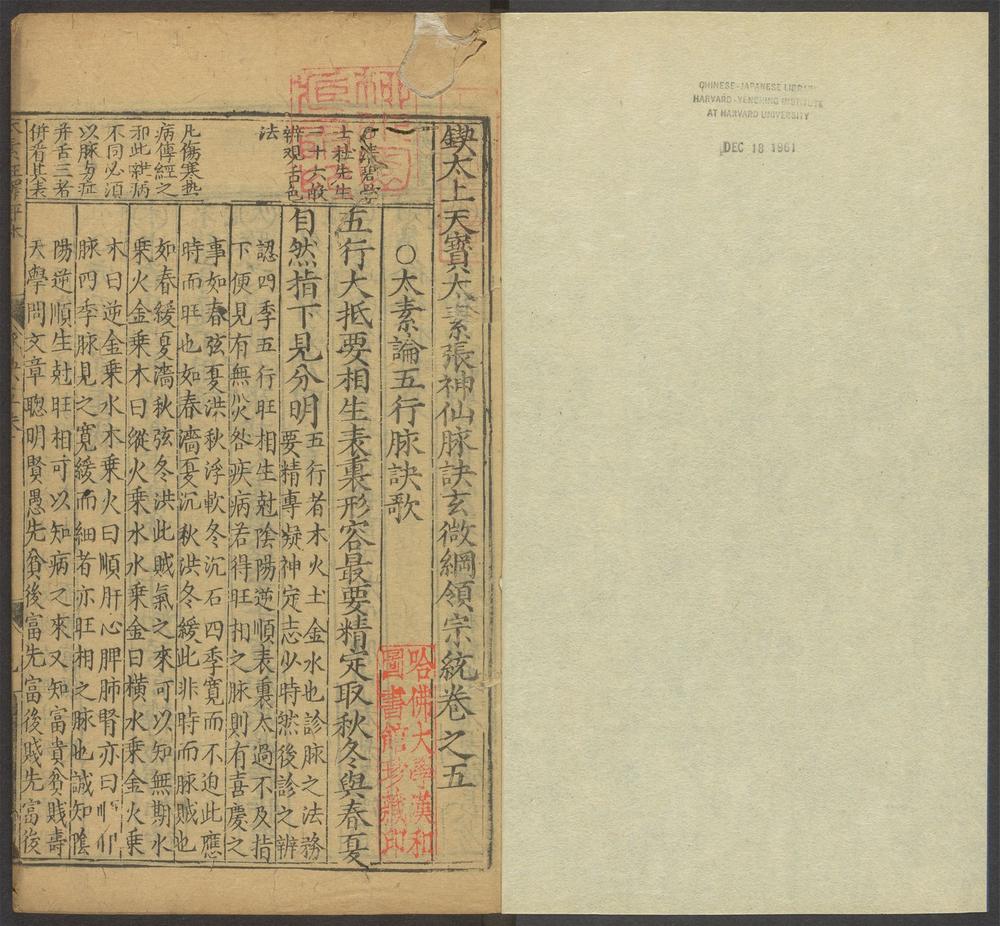 CHINESE-JAPANESE LIBRARY
HARVARD-YENCHING INSTITUTE
AT HARVARD UNIVERSITY
DEC 18 1961
鍥太上天寶太素張神仙脉訣玄微綱領宗統卷之五
哈佛大學漢和
圖書館珍藏印
○太素論五行脉訣歌
五行大抵要相生表裏形容最要精定取秋冬與春夏
自然指下見分明
五行者木火土金水也診脉之法務
要精專凝神定志少時然後診之辨
認四季五行旺相生尅陰陽逆順表裏太過不及指
下便見有無災咎疾病若得旺相之脉則有喜慶之
事如春弦夏洪秋浮軟冬沉石四季寬而不迫此應
時而旺也如春濇夏沉秋洪冬緩此非時而脉賊也
如春緩夏濇秋弦冬洪此賊氣之來可以知無期水
乘火金乘木曰縱火乘水水乘金曰橫水乘金火乘
木曰逆金乘水木乘火曰順肝心脾肺腎亦曰
脉四季脉見之寬緩而細者亦旺相之脉也誠知陰
陽逆順生尅旺相可以知病之來又知富貴貧賤壽
夭學問文章聰明賢愚先貧後富先富後賤先富後
清碧學
士杜先生
三十六般
辨观舌色
法
凡傷寒熱
病傳經之
邪此雜病
不同必須
以脉与症
并舌三者
併看其表